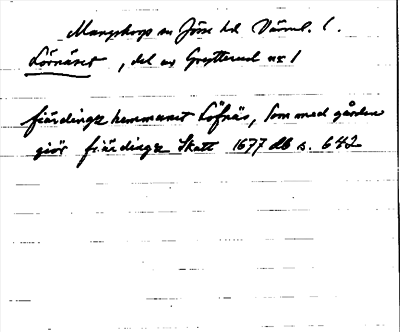 Mangskogs sn Jösse hd Värml. l.
Lövnäset, del av Gryttered nr 1
fiärdingz hemmanet Löfnäs, som med gården
giör fiärdingz Skatt 1677 db s. 642